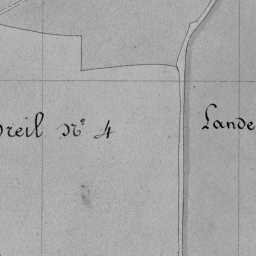 reil Nº 4
Lande